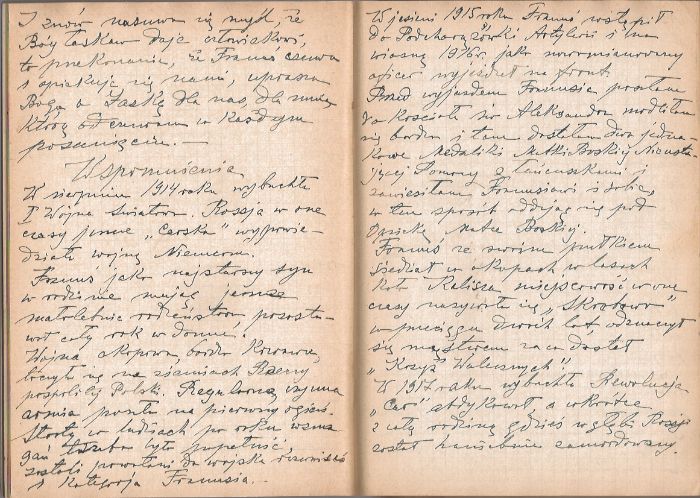 I znów nasuwa się myśl, że
Bóg łaskaw daje człowiekowi,
to przekonanie, że Franuś czuwa
i opiekuje się nami, uprasza
Boga o Łaskę dla nas, dla mnie
którą odczuwam w każdym
posunięciu. —
Wspomnienia
W sierpniu 1914 roku wybuchła
I Wojna Światowa. Rossja w one
czasy jeszcze „Carska" wypowie-
działa wojnę Niemcom.
Franuś jako najstarszy syn
w rodzinie mając jeszcze
małoletnie rodzeństwo pozosta-
wał cały rok w domu.
Wojna okopowa, bardzo krwawa,
toczyła się na ziemiach Rzeczy
pospolitej Polski. Regularna czynna
armia poszła na pierwszy ogień.
Straty w ludziach po roku wzma
gań trzeba było uzupełnić,
zostali powołani do wojska rezerwiści
i Kategorja Franusia. —
W jesieni 1915 roku Franuś wstąpił
do Podchorążówki Artylerii i na
wiosnę 1916 r. jako
oficer wyjechał na front.
Przed wyjazdem Franusia poszłam
do Kościoła św Aleksandra modliłam
się bardzo i tam dostałam dwa jedna
kowe Medaliki Matki Boskiej Nieusta
jącej Pomocy z łańcuszkami i
zawiesiłam Franusiowi i sobie,
w ten sposób oddając się pod
Opiekę Matce Boskiej.
Franuś ze swoim pułkiem
siedział w okopach w lasach
koło Kalisza miejscowość w one
czasy nazywała się „Skrobowo"
w przeciągu dwóch lat odznaczył
się męstwem za co dostał
„Krzyż Walecznych"
W 1917 roku wybuchła Rewolucja
„Car" abdykował a wkrótce
z całą rodziną gdzieś w głębi Rossji
został haniebnie zamordowany.